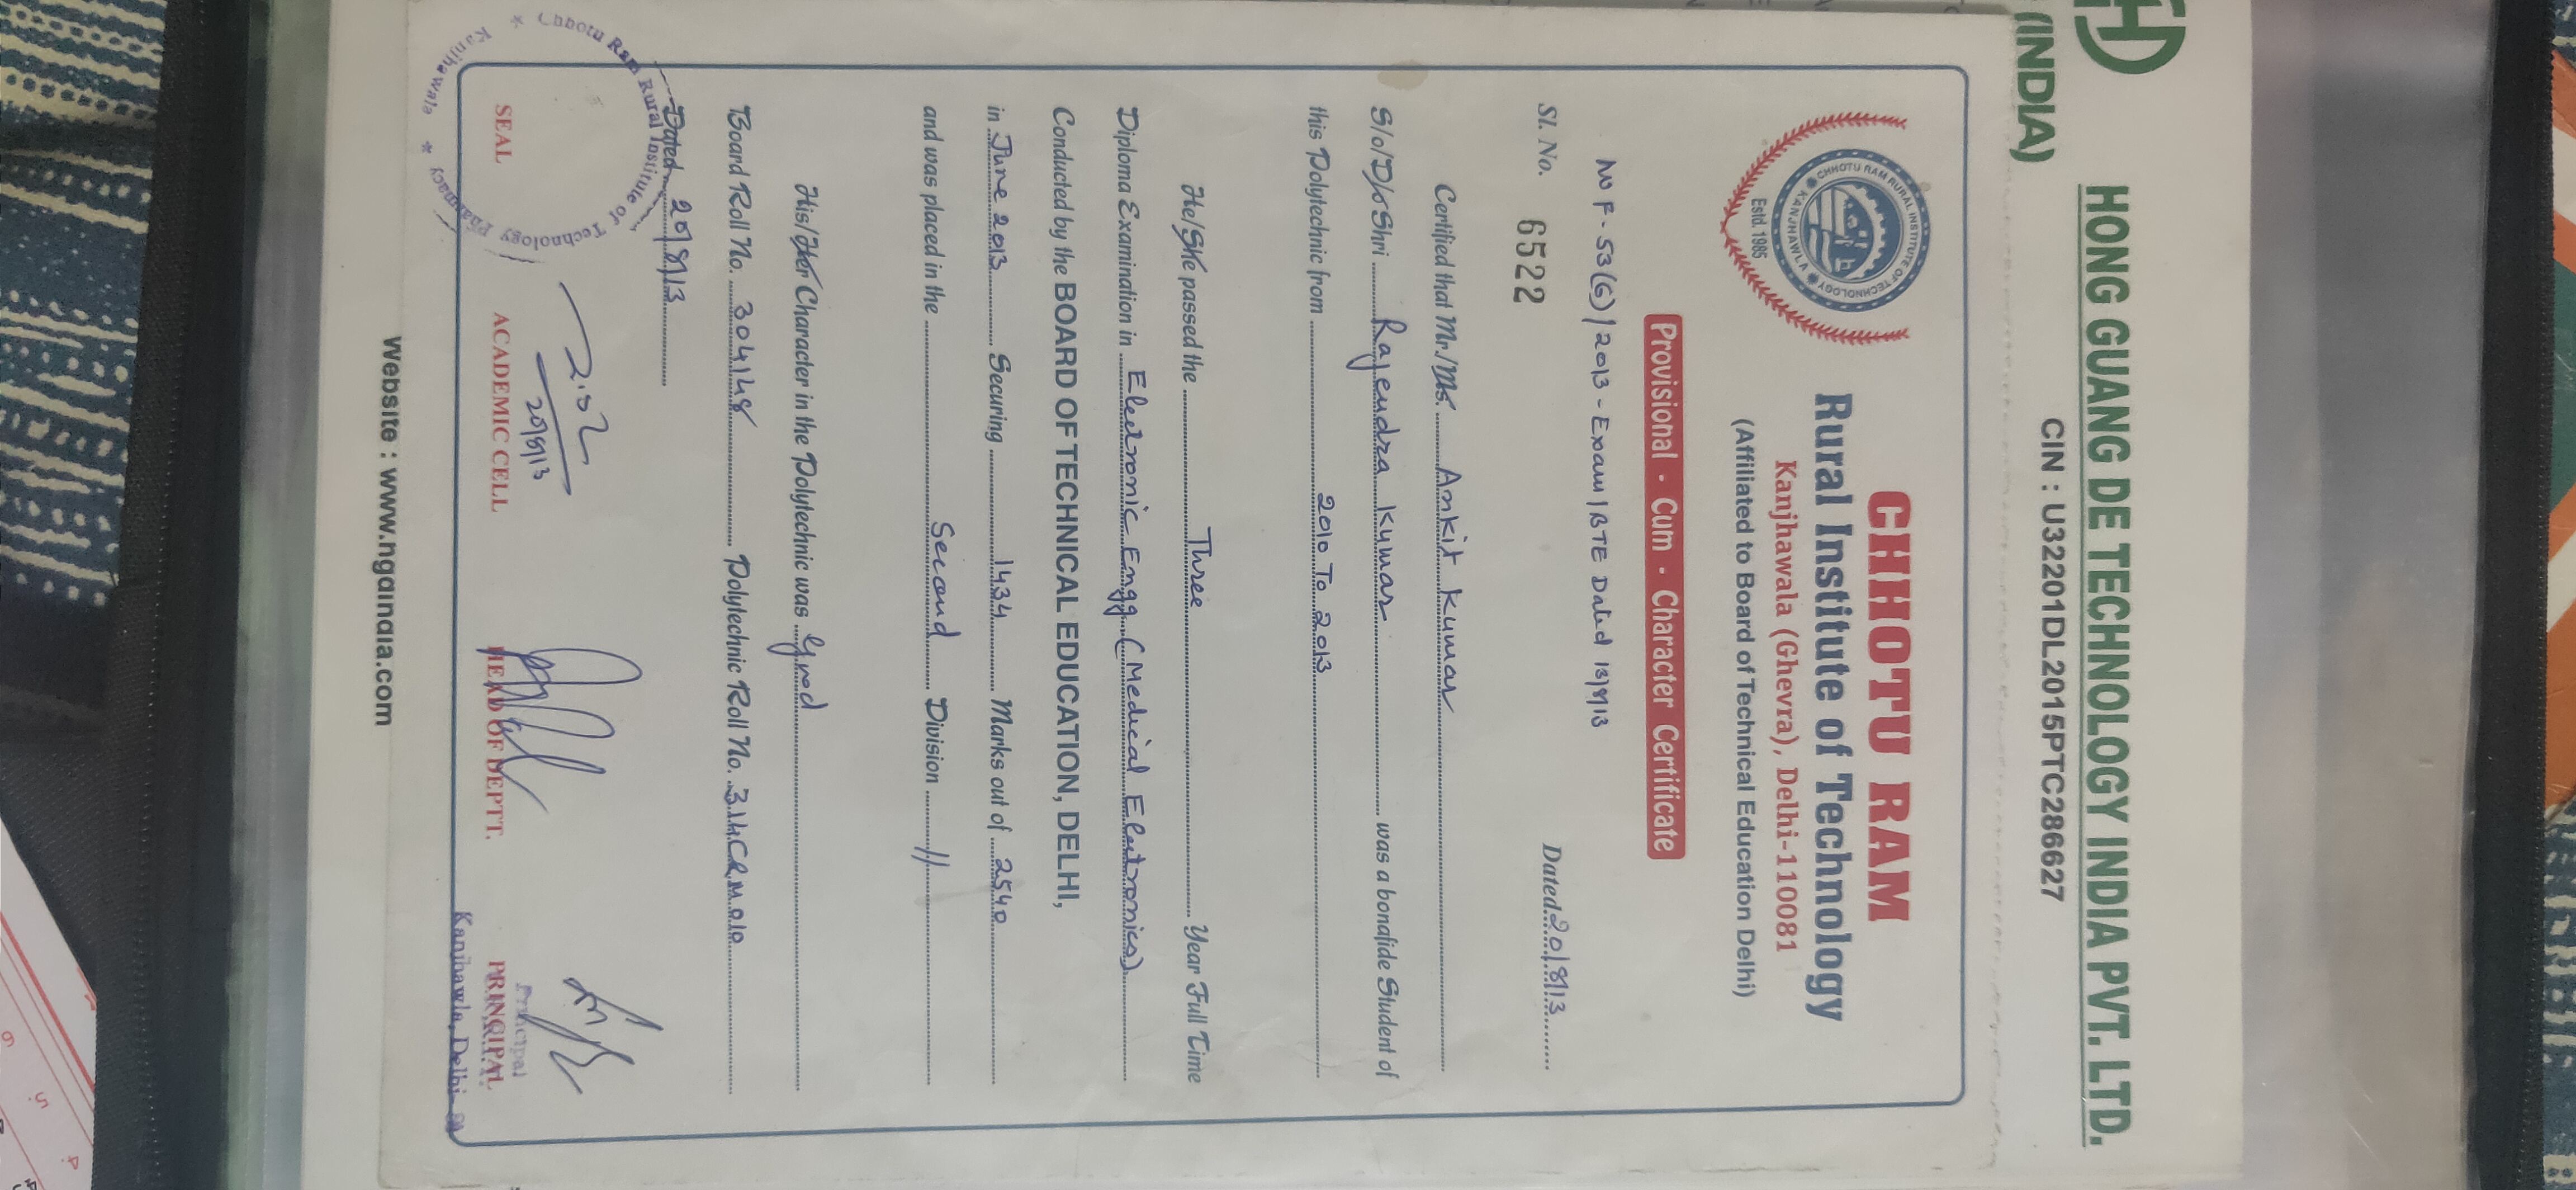 (INDIA)
HONG GUANG DE TECHNOLOGY INDIA PVT. LTD.
CIN : U32201DL2015PTC286627
CHHOTU RAM
Rural Institute of Technology
Kanjhawala (Ghevra), Delhi-110081
(Affiliated to Board of Technical Education Delhi)
CHHOTU RAM RURAL INSTITUTE OF TECHNOLOGY
KANJHAWLA
Estd. 1985
Provisional · Cum · Character Certificate
No F-53(6)/2013-Exam/BTE Dated 13/8/13
Sl. No. 6522 Dated 20/8/13
Certified that Mr./Ms. Ankit Kumar
S/o/D/o Shri Rajendra Kumar was a bonafide Student of
this Polytechnic from 2010 To 2013
He/She passed the Three Year Full Time
Diploma Examination in Electronic Engg. (Medical Electronics)
Conducted by the BOARD OF TECHNICAL EDUCATION, DELHI,
in June 2013 Securing 1434 Marks out of 2540
and was placed in the Second Division //
His/Her Character in the Polytechnic was Good
Board Roll No. 304148 Polytechnic Roll No.
Dated 20/8/13
Chhotu Ram Rural Institute of Technology Pharmacy
Kanjhawala
20/8/13
SEAL ACADEMIC CELL HEAD OF DEPTT. PRINCIPAL
Principal
Kanjhawla, Delhi
Website : www.ngdindia.com